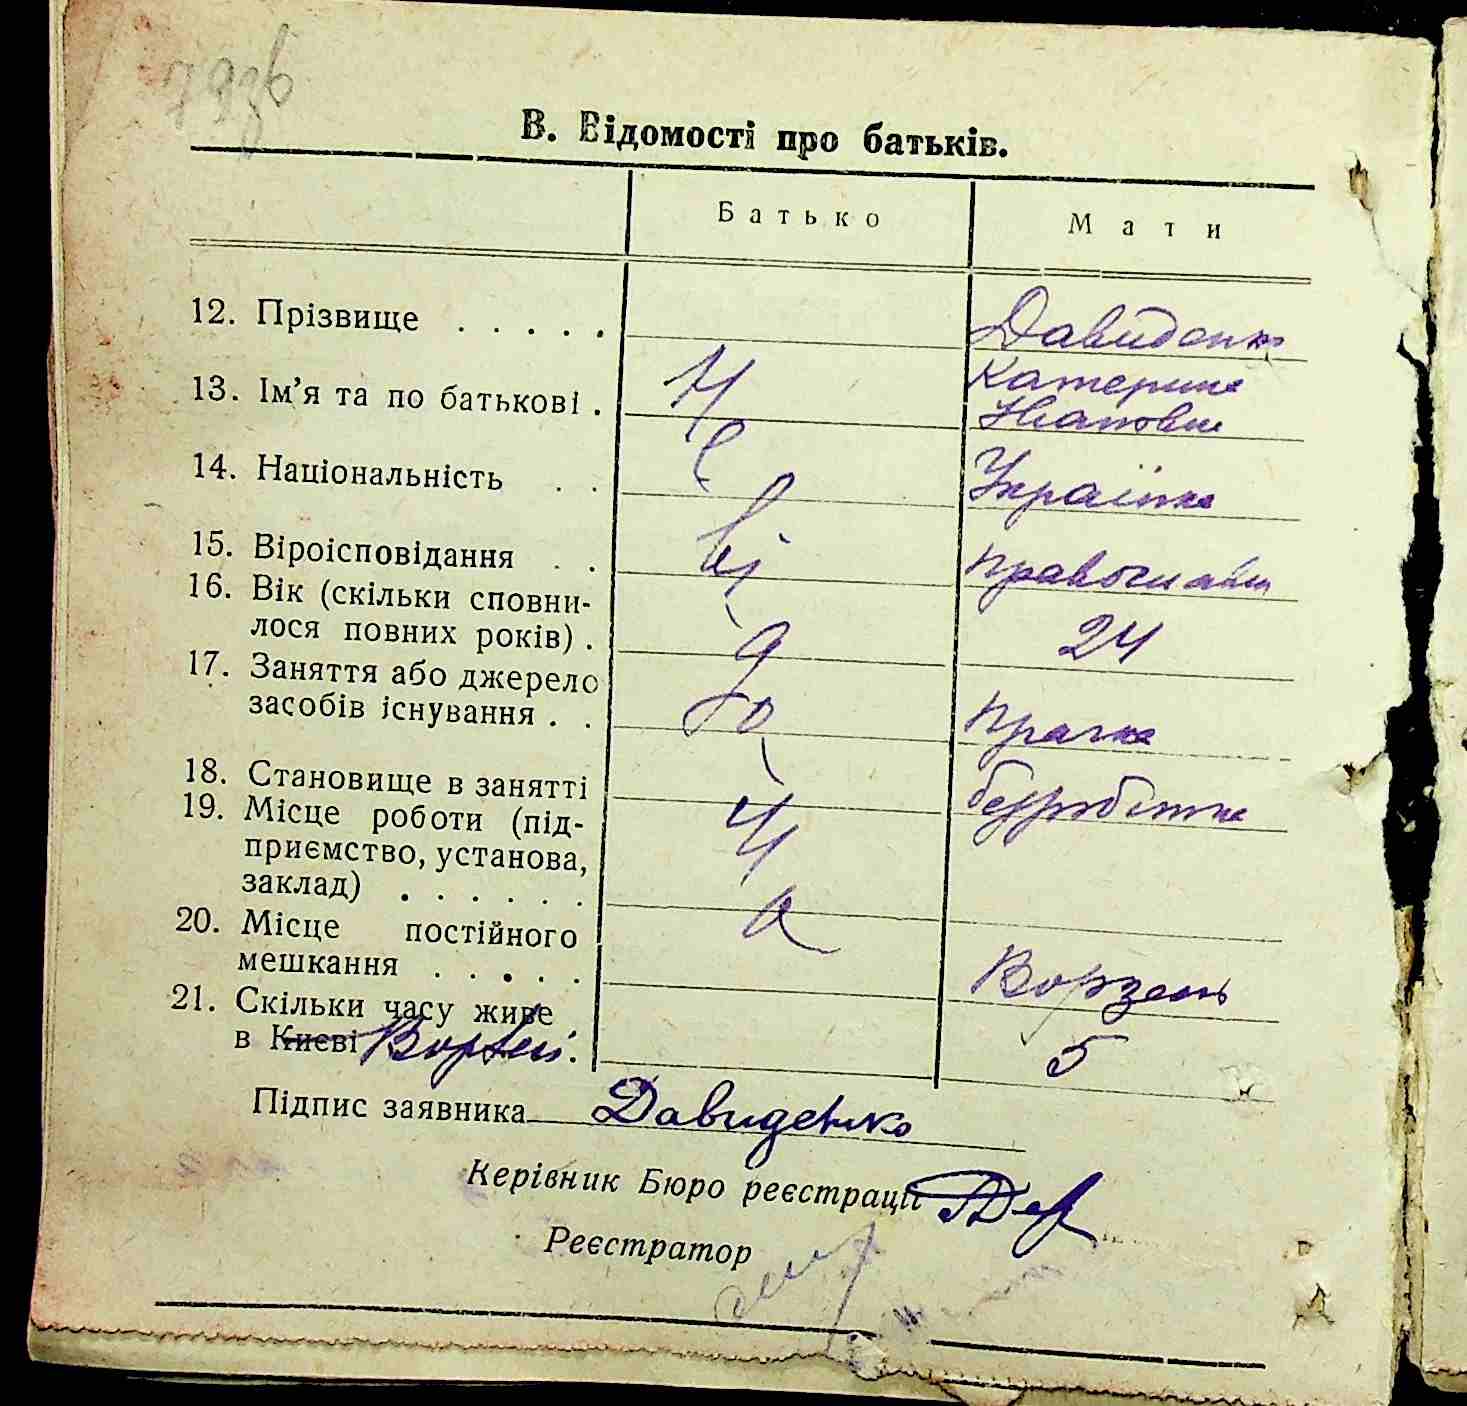 В. Відомості про батьків.
Батько Мати
12. Прізвище . . . . . Давиденко
13. Ім'я та по батькові . Катерина
Ивановна
14. Національність . . Українка
15. Віроісповідання . . Православн
16. Вік (скільки сповни-
лося повних років) . 24
17. Заняття або джерело
засобів існування . . Прачка
18. Становище в занятті безробітна
19. Місце роботи (під-
приємство, установа,
заклад) . . . . . .
20. Місце постійного
мешкання . . . . . Ворзель
21. Скільки часу живе
в Києві Ворзелі. 5
Невідомий
Підпис заявника Давиденко
Керівник Бюро реєстрації
Реєстратор